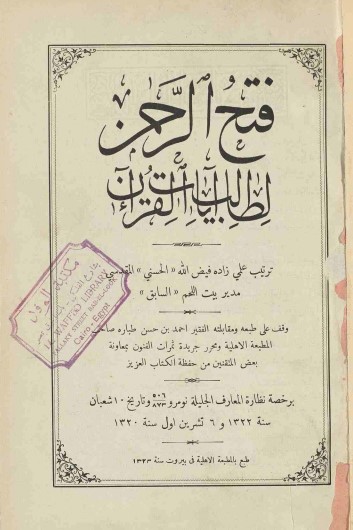 فتح الرحمن
لطالب آيات القرآن
ترتيب علمي زاده فيض الله «الحسني» المقدسي
مدير بيت اللحم «السابق»
وقف على طبعه ومقابلته الفقير احمد بن حسن طباره صاحب
المطبعة الاهلية ومحرر جريدة ثمرات الفنون بمعاونة
بعض المتقنين من حفظة الكتاب العزيز
برخصة نظارة المعارف الجليلة نومرو ٥٠٦/٨٧٣ وتاريخ ١٠ شعبان
سنة ١٣٢٢ و ٦ تشرين اول سنة ١٣٢٠
طبع بالمطبعة الاهلية في بيروت سنة ١٣٢٣
Cairo-Egypt